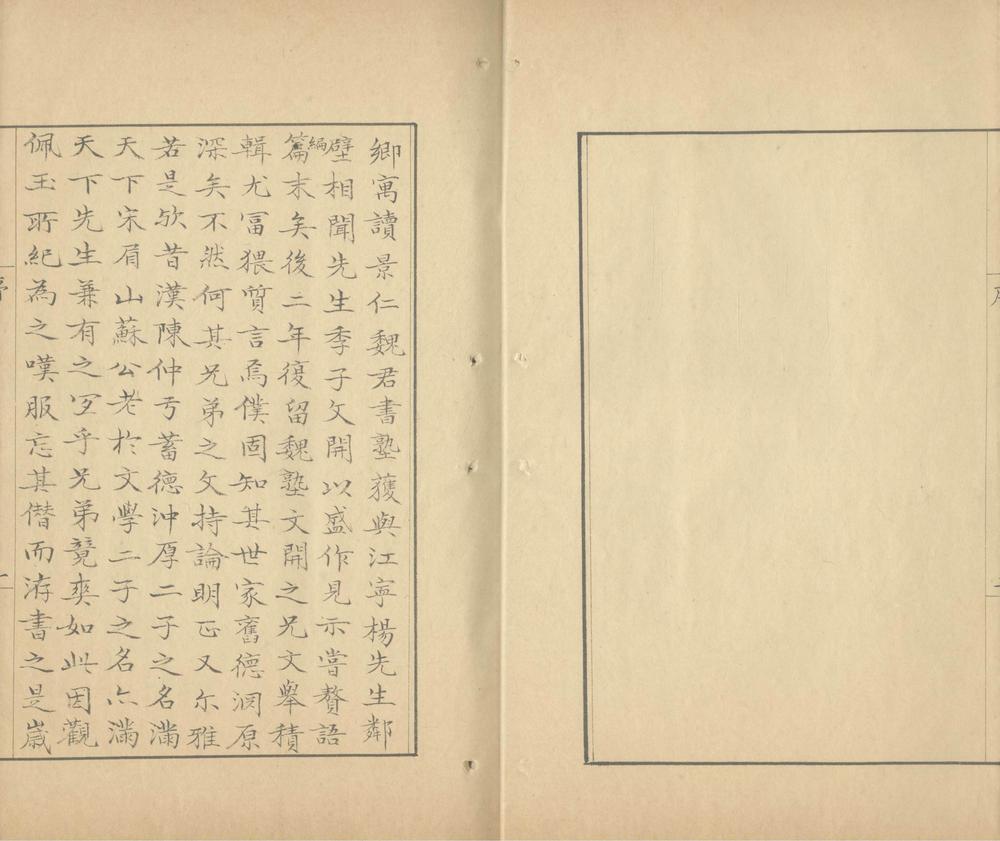 鄉寓讀景仁魏君書塾獲與江寧楊先生鄰
壁相聞先生季子文開以盛作見示嘗贅語
編篇末矣後二年復留魏塾文開之兄文舉積
輯尤冨猥質言焉僕固知其世家舊德淵原
深矣不然何其兄弟之文持論明正又尔雅
若是欤昔漢陳仲弓蓄德沖厚二子之名滿
天下宋眉山蘇公老於文學二子之名亦滿
天下先生兼有之冝乎兄弟竟爽如此因觀
佩玉所紀為之嘆服忘其僭而洊書之是嵗
序